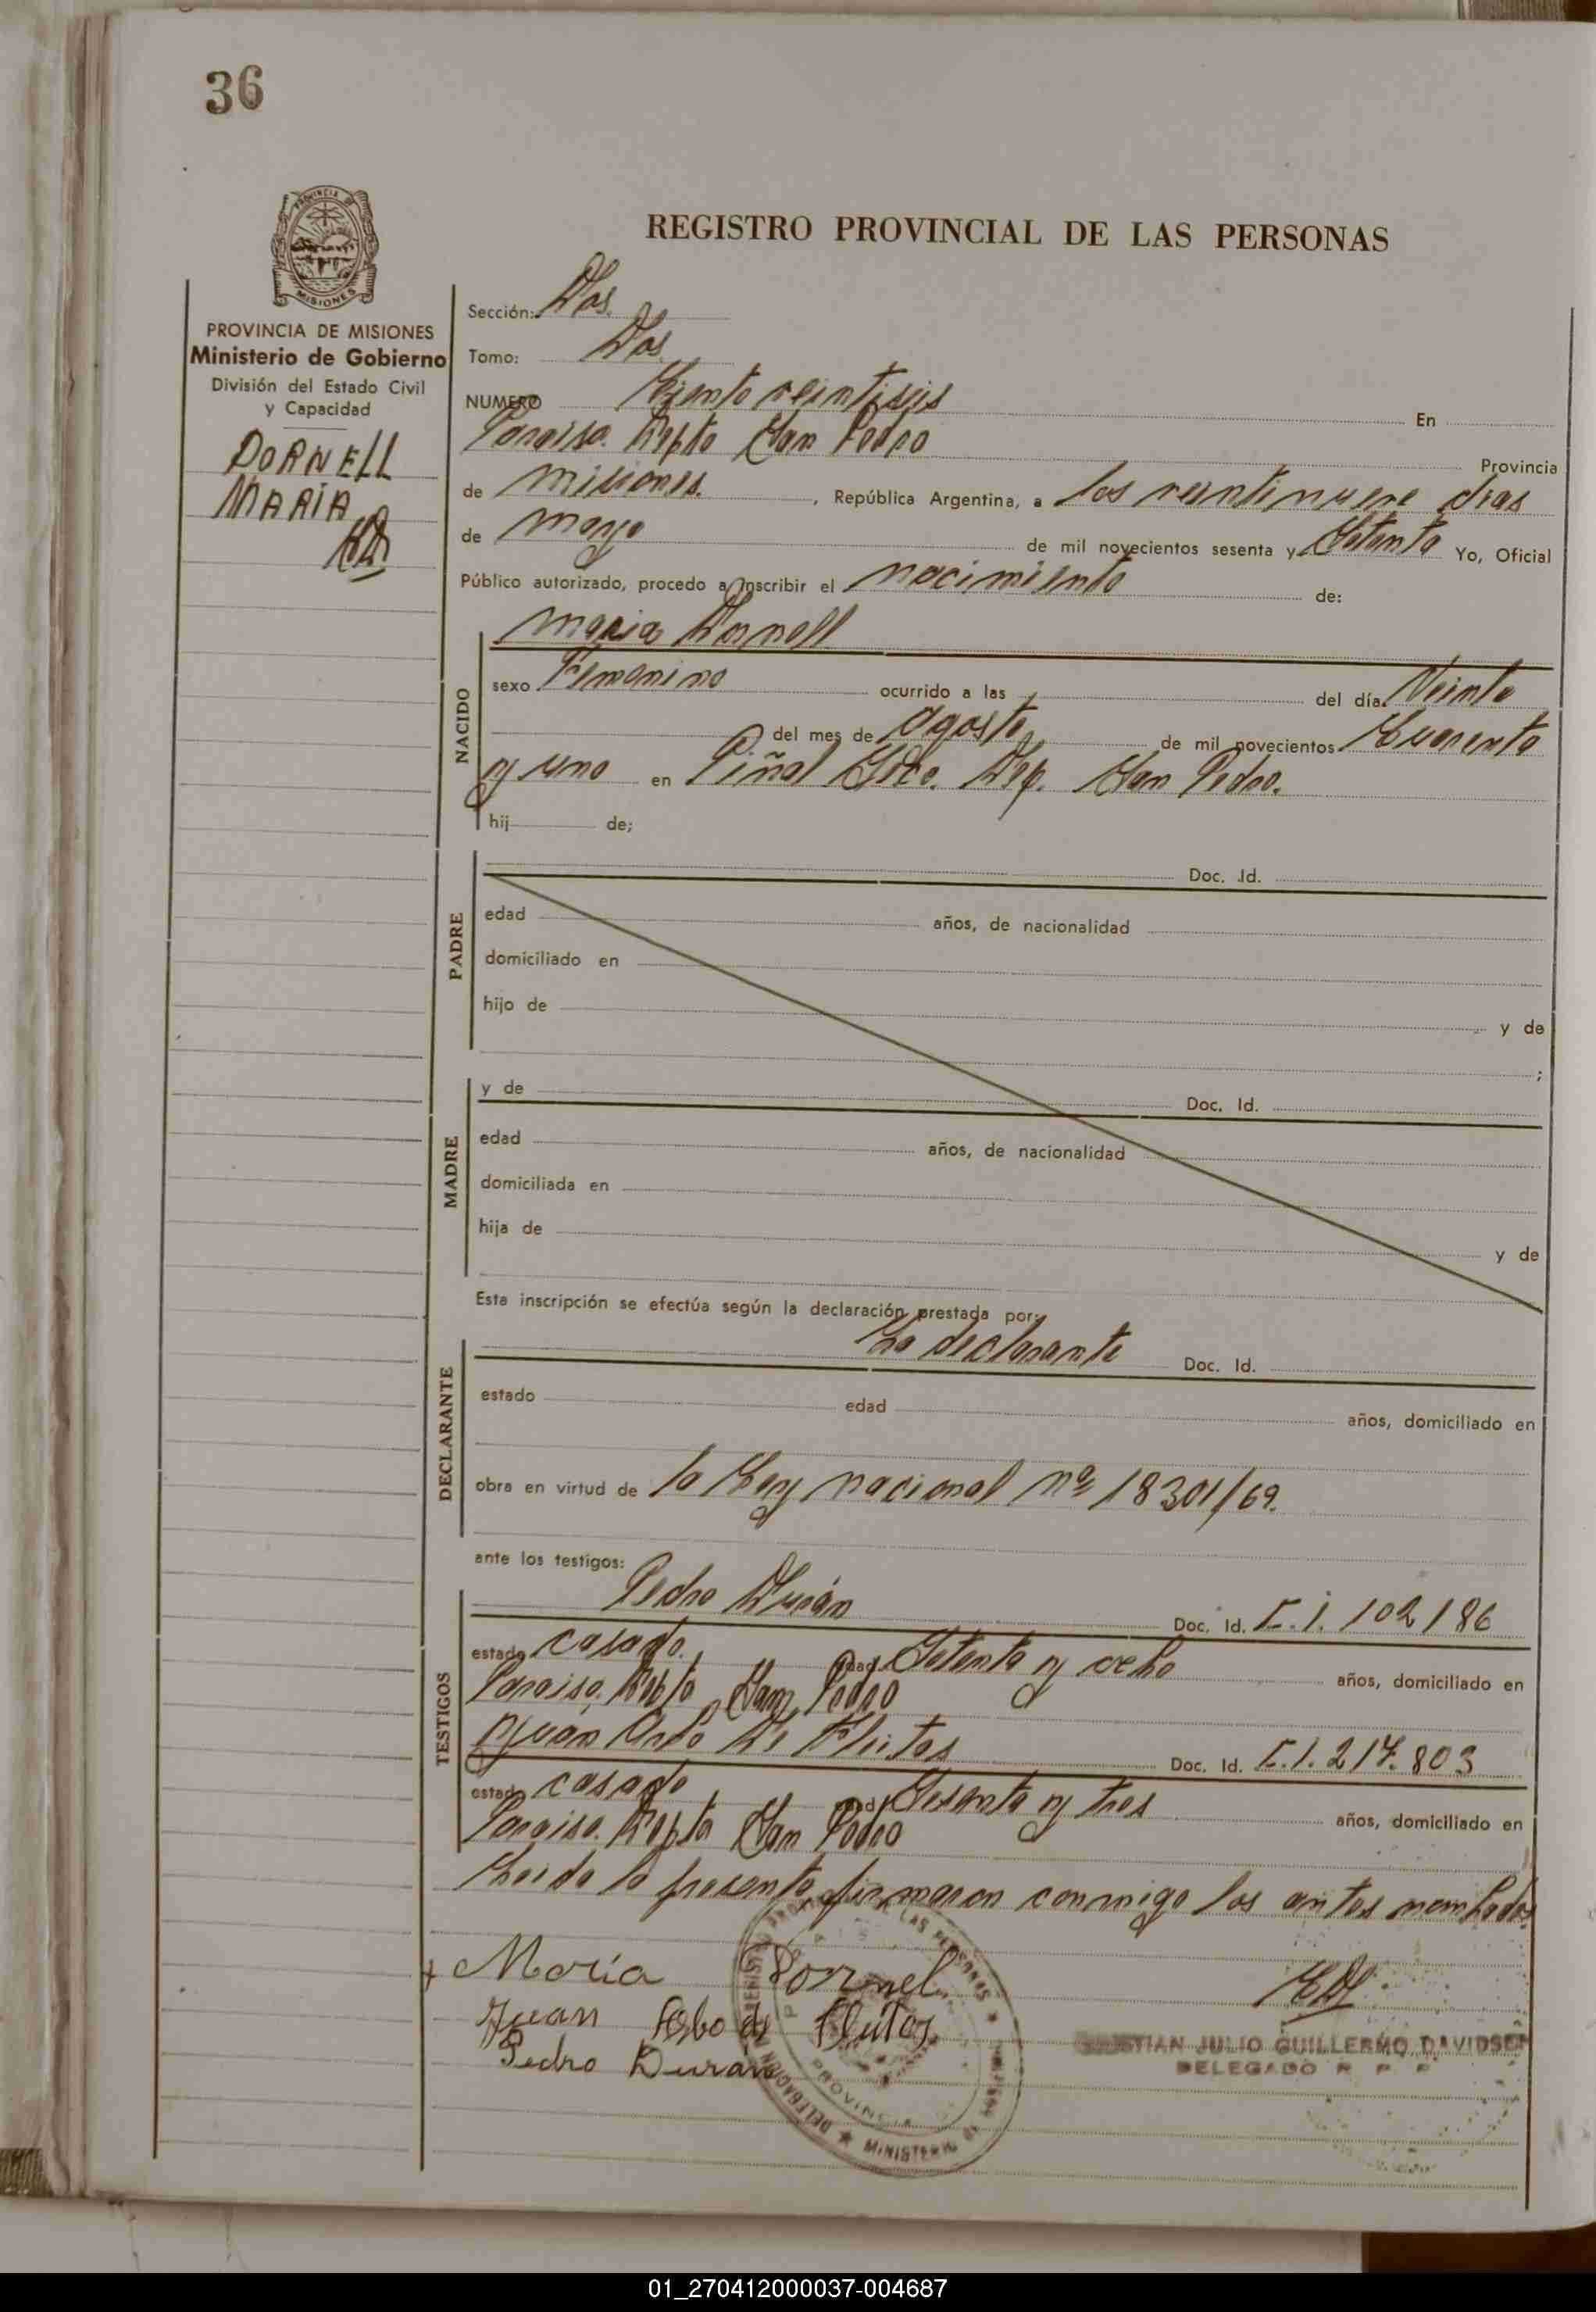 36
REGISTRO PROVINCIAL DE LAS PERSONAS
PROVINCIA DE MISIONES
Ministerio de Gobierno
División del Estado Civil
y Capacidad
DORNELL
MARÍA
Sección: Dos.
Tomo: Dos
NUMERO Ciento veintiseis En
Paraiso. Depto San Pedro Provincia
de Misiones. , República Argentina, a los veintinueve dias
de mayo de mil novecientos sesenta y Setenta Yo, Oficial
Público autorizado, procedo a inscribir el nacimiento de:
NACIDO
Maria Dornell
sexo Femenino ocurrido a las del día Veinte
del mes de Agosto de mil novecientos Cuarenta
y uno en Piñal Dep. San Pedro.
hij de;
PADRE
Doc. Id.
edad años, de nacionalidad
domiciliado en
hijo de y de
;
MADRE
y de Doc. Id.
edad años, de nacionalidad
domiciliada en
hija de y de
Esta inscripción se efectúa según la declaración prestada por:
DECLARANTE
La declarante Doc. Id.
estado edad años, domiciliado en
obra en virtud de la Ley nacional nº 18301/69.
ante los testigos:
TESTIGOS
Pedro Durán Doc. Id. C.I. 102186
estado casado. edad Setenta y ocho años, domiciliado en
Paraiso. Depto San Pedro
Juan Arbo De Fleitas Doc. Id. C.I. 217.803
estado casado edad Sesenta y tres años, domiciliado en
Paraiso. Depto San Pedro
Leida la presente firmaron conmigo los antes nombrados
María Dornel
Juan Arbo de Fleitas
Pedro Durán
JULIO GUILLERMO DAVIDSEN
DELEGADO R P P
01_270412000037-004687